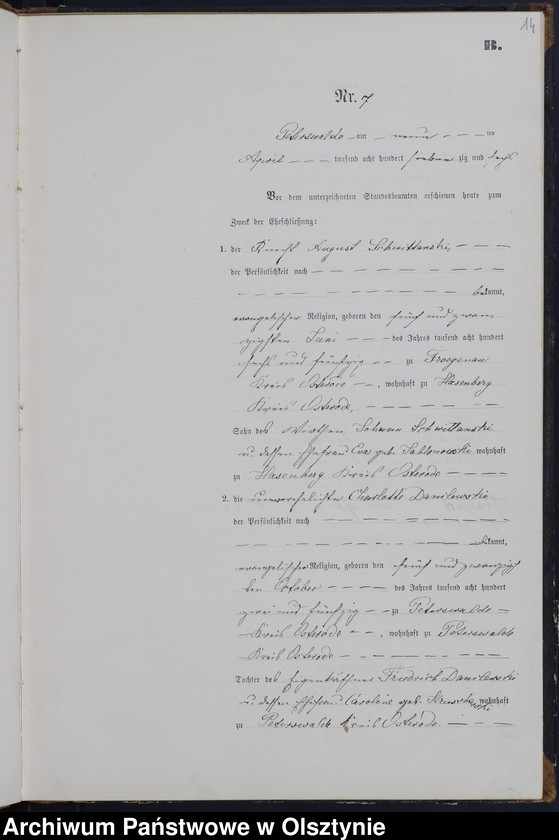 14
B.
Nr. 7
Peterswalde am neun ten
April tausend acht hundert sieben zig und sechs
Vor dem unterzeichneten Standesbeamten erschienen heute zum
Zweck der Eheschließung:
1. der Knecht August Schwittanski,
der Persönlichkeit nach
bekannt,
evangelischer Religion, geboren den fünf und zwan
zigsten Juni des Jahres tausend acht hundert
sechs und fünfzig zu Froegenau
Kreis Osterode, wohnhaft zu Hasenberg
Kreis Osterode,
Sohn des Wirthen Johann Schwittanski
u. dessen Ehefrau Eva geb. Jablonowski wohnhaft
zu Hasenberg Kreis Osterode
2. die unverehelichte Charlotte Danilewski
der Persönlichkeit nach
bekannt,
evangelischer Religion, geboren den fünf und zwanzigs
ten October des Jahres tausend acht hundert
zwei und fünfzig zu Peterswalde
Kreis Osterode, wohnhaft zu Peterswalde
Kreis Osterode
Tochter des Eigenkäthner Friedrich Danilewski
u. dessen Ehefrau Caroline geb. wohnhaft
zu Peterswalde Kreis Osterode.
Archiwum Państwowe w Olsztynie